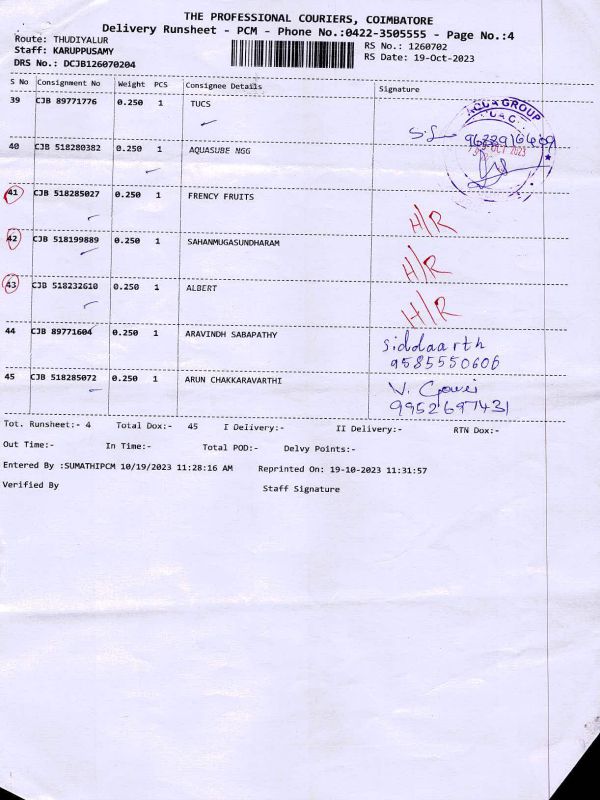 THE PROFESSIONAL COURIERS, COIMBATORE
Delivery Runsheet - PCM - Phone No.:0422-3505555 - Page No.:4
Route: THUDIYALUR
RS No.: 1260702
Staff: KARUPPUSAMY
RS Date: 19-Oct-2023
DRS No.: DCJB126070204
S No Consignment No Weight PCS Consignee Details Signature
39 CJB 89771776 0.250 1 TUCS
AQUA GROUP
40 CJB 518280382 0.250 1 AQUASUBE NGG
OCT 2023
41 CJB 518285027 0.250 1 FRENCY FRUITS H/R
42 CJB 518199889 0.250 1 SAHANMUGASUNDHARAM H/R
43 CJB 518232610 0.250 1 ALBERT H/R
44 CJB 89771604 0.250 1 ARAVINDH SABAPATHY siddaarth
9585550606
45 CJB 518285072 0.250 1 ARUN CHAKKARAVARTHI V. Gowri
9952697431
Tot. Runsheet:- 4 Total Dox:- 45 I Delivery:- II Delivery:- RTN Dox:-
Out Time:- In Time:- Total POD:- Delvy Points:-
Entered By :SUMATHIPCM 10/19/2023 11:28:16 AM Reprinted On: 19-10-2023 11:31:57
Verified By Staff Signature